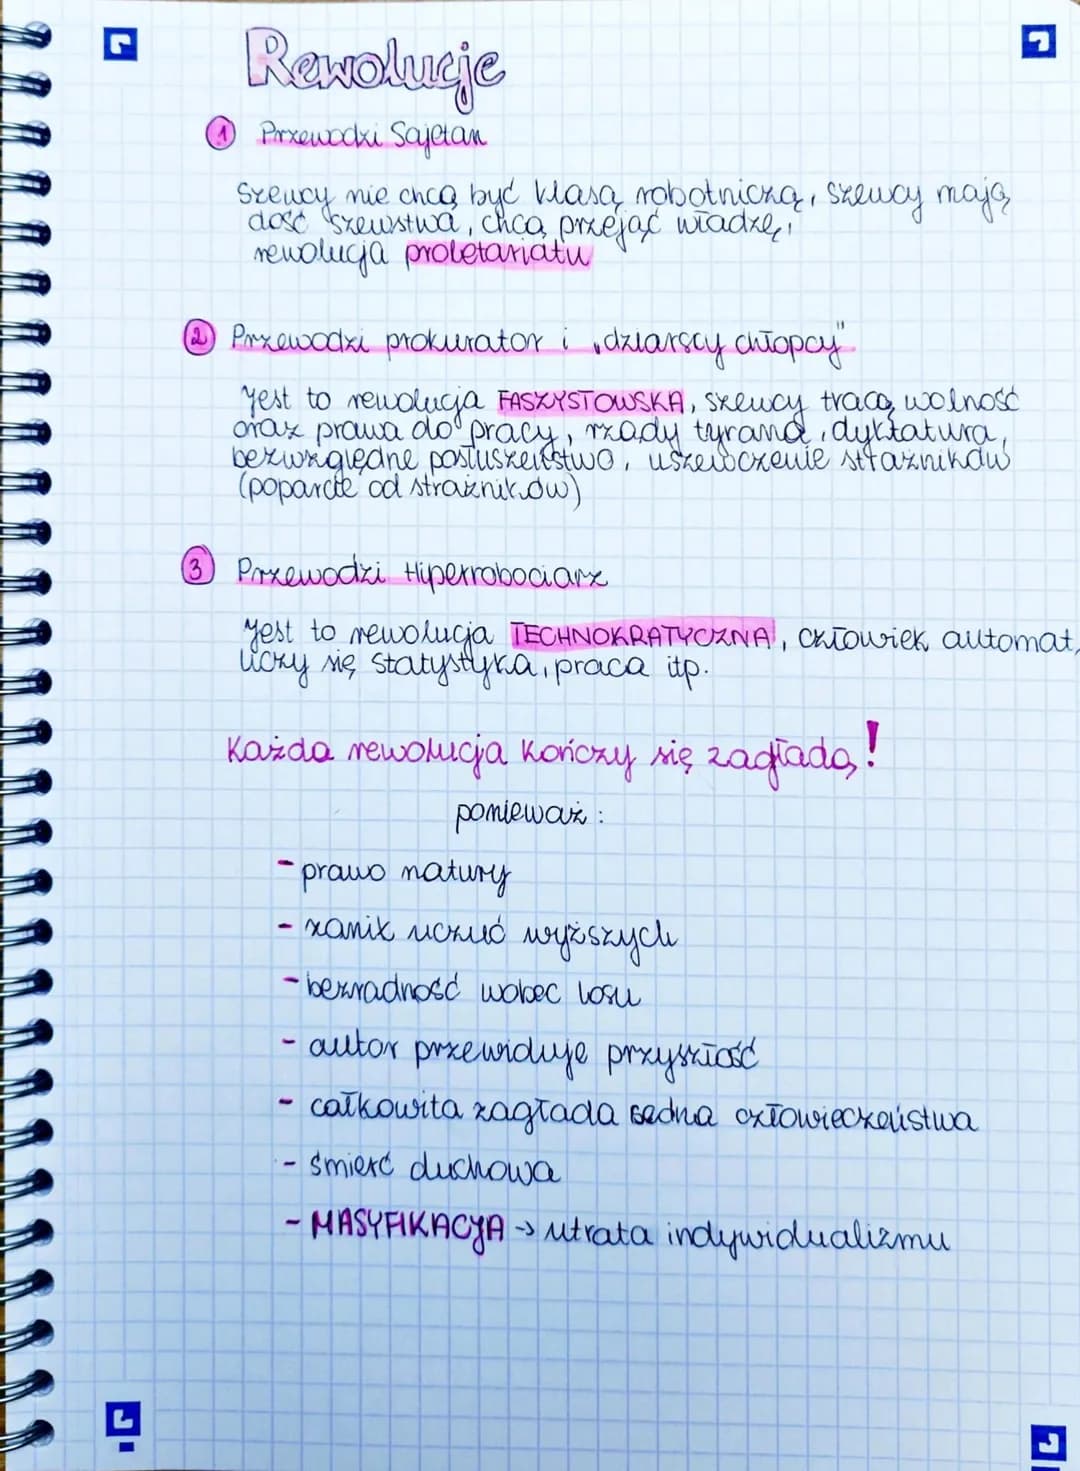 Rewolucje
1 Przewodzi Sajetan
Szewcy nie chcą być klasą robotniczą, szewcy mają
dość szewstwa, chcą przejąć władzę,
rewolucja proletariatu
2 Przewodzi prokurator i „dziarscy chłopcy"
Jest to rewolucja FASZYSTOWSKA, szewcy tracą wolność
oraz prawa do pracy, rządy tyrana, dyktatura,
bezwzględne posłuszeństwo, uszewczenie strażników
(poparcie od strażników)
3 Przewodzi Hiperrobociarz
Jest to rewolucja TECHNOKRATYCZNA, człowiek automat,
liczy się statystyka, praca itp.
Każda rewolucja kończy się zagładą!
ponieważ:
- prawo natury
- zanik uczuć wyższych
- bezradność wobec losu
- autor przewiduje przyszłość
- całkowita zagłada sedna człowieczeństwa
- śmierć duchowa
- MASYFIKACJA -> utrata indywidualizmu